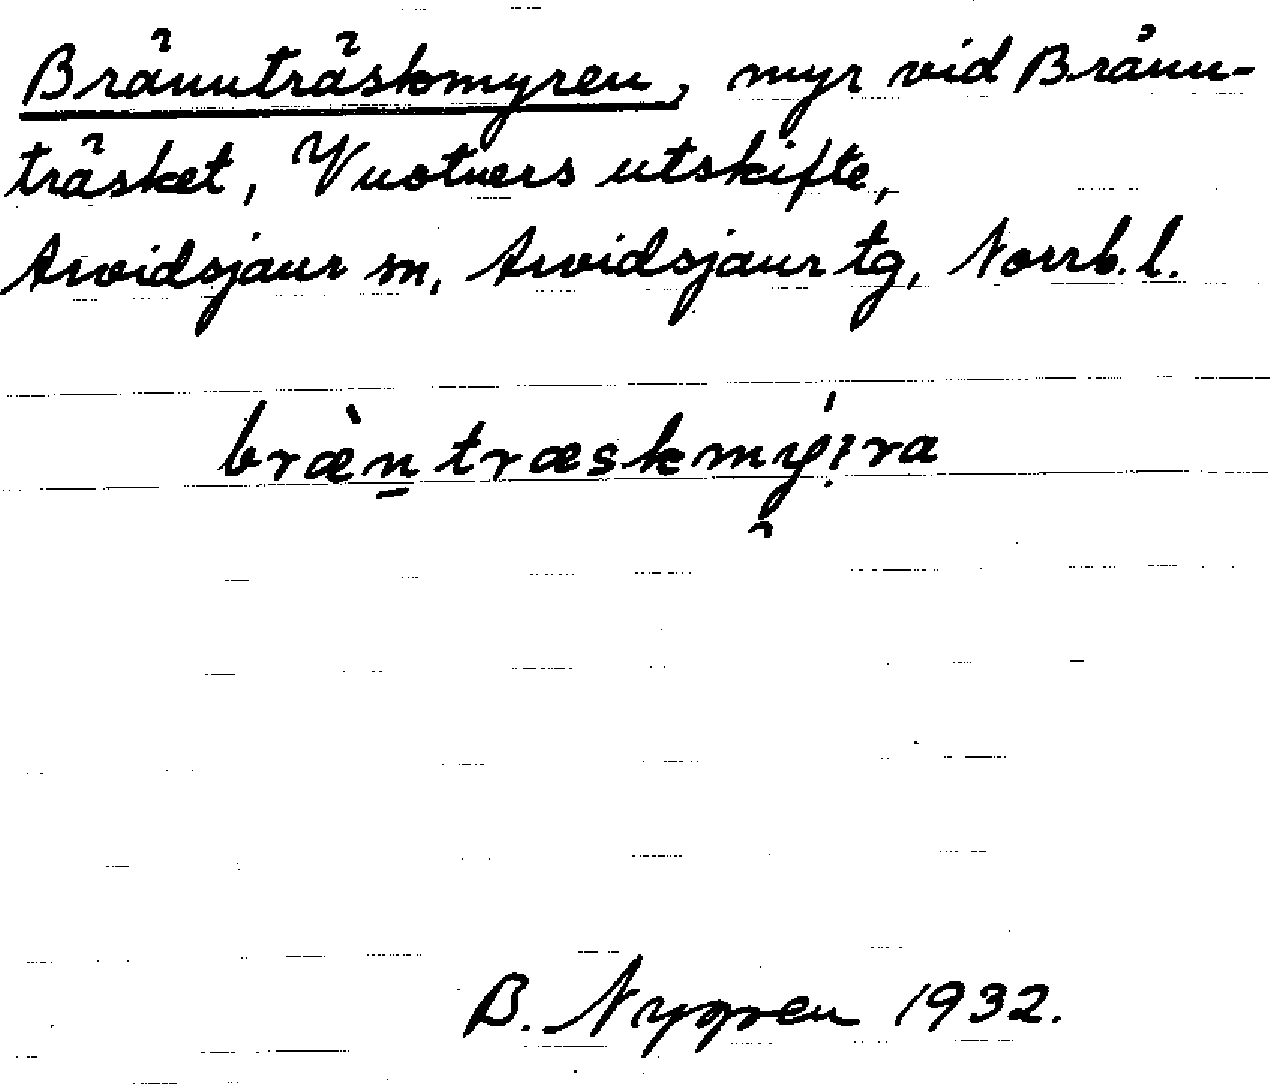 Brännträskmyren, myr vid Bränn-
träsket, Vuotners utskifte,
Arvidsjaur sn, Arvidsjaur tg, Norrb. l.
bræ̀n̲træskmý̨ːra
B. Nygren 1932.